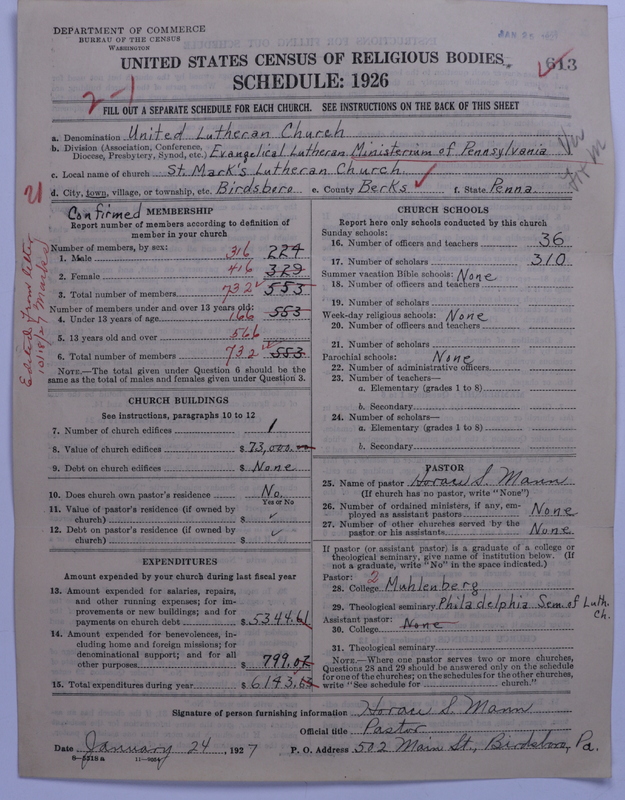 DEPARTMENT OF COMMERCE
BUREAU OF THE CENSUS
WASHINGTON
UNITED STATES CENSUS OF RELIGIOUS BODIES
613
SCHEDULE: 1926
2-1
FILL OUT A SEPARATE SCHEDULE FOR EACH CHURCH. SEE INSTRUCTIONS ON THE BACK OF THIS SHEET
a. Denomination United Lutheran Church
b. Division (Association, Conference, Diocese, Presbytery, Synod, etc.) Evangelical Lutheran Ministerium of Pennsylvania
c. Local name of church St. Mark's Lutheran Church
d. City, town, village, or township, etc. Birdsboro e. County Berks f. State Penna.
21
Edited from letter 10/18/27
Confirmed MEMBERSHIP
Report number of members according to definition of
member in your church
Number of members, by sex:
1. Male 316 224
2. Female 416 329
3. Total number of members 732 553
Number of members under and over 13 years old:
4. Under 13 years of age 166 553
5. 13 years old and over 566
6. Total number of members 732 553
NOTE.—The total given under Question 6 should be
same as the total of males and females given under Question 3.
CHURCH BUILDINGS
See instructions, paragraphs 10 to 12
7. Number of church edifices 1
8. Value of church edifices $ 73,000.00
9. Debt on church edifices $ None
10. Does church own pastor's residence No.
Yes or No
11. Value of pastor's residence (if owned by
church) $ ✓
12. Debt on pastor's residence (if owned by
church) $ ✓
EXPENDITURES
Amount expended by your church during last fiscal year
13. Amount expended for salaries, repairs,
and other running expenses; for im-
provements or new buildings; and for
payments on church debt $ 5344.61
14. Amount expended for benevolences, in-
cluding home and foreign missions; for
denominational support; and for all
other purposes 799.02
15. Total expenditures during year $ 6143.63
CHURCH SCHOOLS
Report here only schools conducted by this church
Sunday schools:
16. Number of officers and teachers 36
17. Number of scholars 310
Summer vacation Bible schools: None
18. Number of officers and teachers
19. Number of scholars
Week-day religious schools: None
20. Number of officers and teachers
21. Number of scholars
Parochial schools: None
22. Number of administrative officers
23. Number of teachers—
a. Elementary (grades 1 to 8)
b. Secondary
24. Number of scholars—
a. Elementary (grades 1 to 8)
b. Secondary
PASTOR
25. Name of pastor Horace S. Mann
(If church has no pastor, write "None")
26. Number of ordained ministers, if any, em-
ployed as assistant pastors None
27. Number of other churches served by the
pastor or his assistants None
If pastor (or assistant pastor) is a graduate of a college or
theological seminary, give name of institution below. (If
not a graduate, write "No" in the space indicated.)
Pastor: 2
28. College Muhlenberg
29. Theological seminary Philadelphia Sem. of Luth. Ch.
Assistant pastor:
30. College None
31. Theological seminary
NOTE.—Where one pastor serves two or more churches,
Questions 28 and 29 should be answered only on the schedule
for one of the churches; on the schedules for the other churches,
write "See schedule for church."
Signature of person furnishing information Horace S. Mann
Official title Pastor
Date January 24 1927 P. O. Address 502 Main St., Birdsboro, Pa.
6-5318 a 11-9054